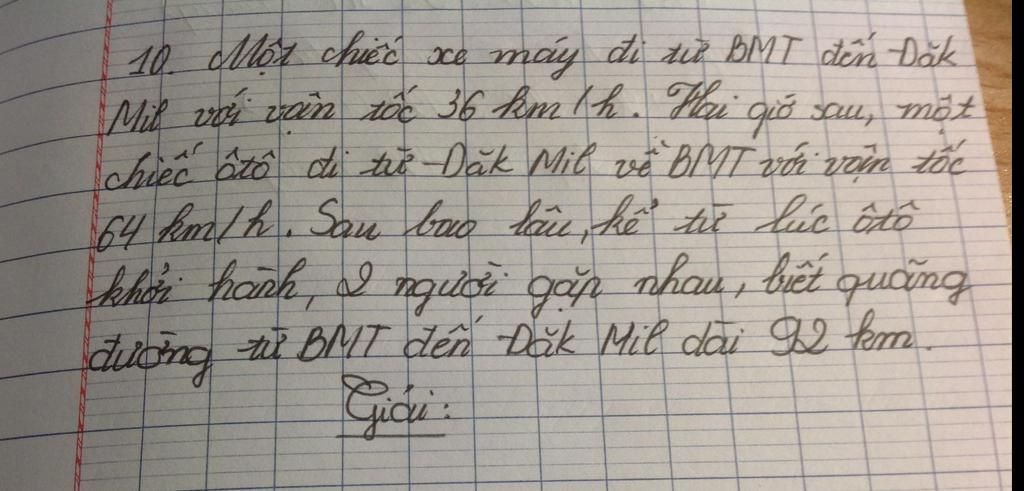 10. Một chiếc xe máy đi từ BMT đến Dăk
Mil với vận tốc 36 km/h. Hai giờ sau, một
chiếc ôtô đi từ Dăk Mil về BMT với vận tốc
64 km/h. Sau bao lâu, kể từ lúc ôtô
khởi hành, 2 người gặp nhau, biết quãng
đường từ BMT đến Dăk Mil dài 92 km.
Giải: